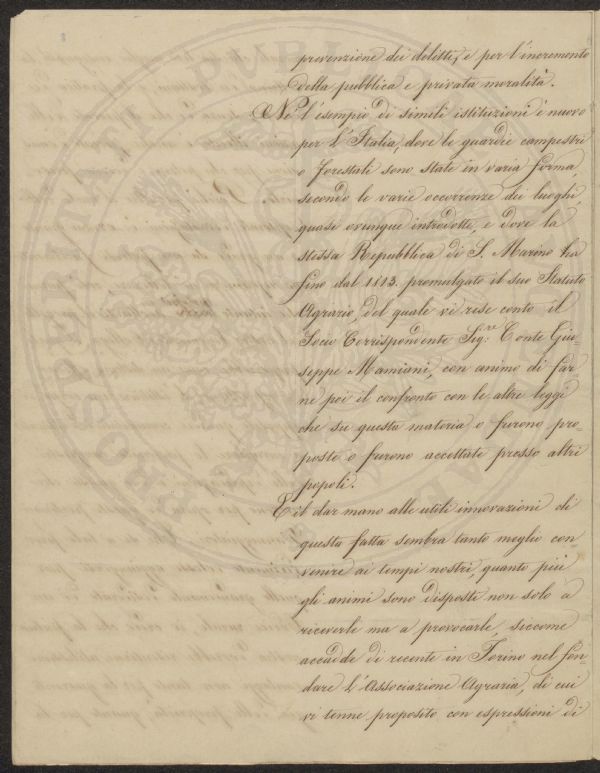 prevenzione dei delitti, e per l'incremento
della pubblica e privata moralità.
Nè l'esempio di simili istituzioni è nuovo
per l'Italia, dove le guardie campestri
o forestali sono state in varia forma,
secondo le varie occorrenze dei luoghi,
quasi ovunque introdotte, e dove la
stessa Repubblica di S. Marino ha
fino dal 1813. promulgato il suo Statuto
Agrario, del quale vi rese conto il
Socio Corrispondente Sig.re Conte Giu-
seppe Mamiani, con animo di far-
ne poi il confronto con le altre leggi
che su questa materia o furono pro-
poste o furono accettate presso altri
popoli.
E il dar mano alle utili innovazioni di
questa fatta sembra tanto meglio con
venire ai tempi nostri, quanto più
gli animi sono disposti non solo a
riceverle ma a provocarle, siccome
accadde di recente in Torino nel fon-
dare l'Associazione Agraria, di cui
vi tenne proposito con espressioni di
PROSPERITATI PUBLICAE